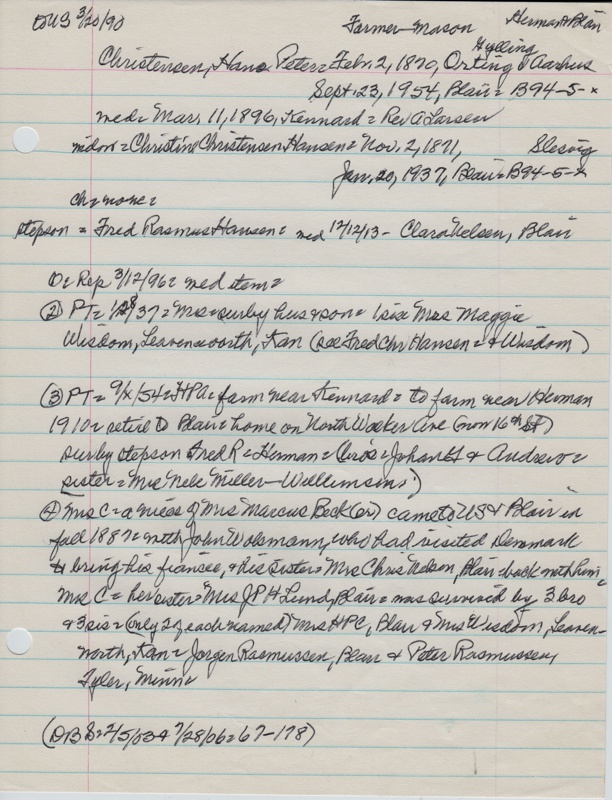 DUS 3/20/90 Farmer-Mason Herman & Blair
Hylling
Christensen, Hans Peter = Febr. 2, 1870, Orting & Aarhus
Sept. 23, 1954, Blair = B94-5-x
med = Mar. 11, 1896, Kennard = Rev A Larsen
widow = Christine Christensen Hansen = Nov. 2, 1871, Slesvig
Jan. 20, 1937, Blair = B94-5-x
ch = none =
stepson = Fred Rasmus Hansen = med 12/12/13 - Clara Nelsen, Blair
D = Rep 3/12/96 = med item =
② PT = 1/28/37 = Mrs = surby hus & son = 1 sis Mrs Maggie
Wisdom, Leavenworth, Kan (see Fred Chr Hansen = & Wisdom)
③ PT = 9/x/54 = HPC = farm near Kennard = to farm near Herman
1910 = retire to Blair = home on North Walker Ave (now 16th St)
surby stepson Fred R = Herman = (bros = Johan H & Andrew =
sister = Mrs Nels Miller - Williamsens)
④ Mrs C = a niece of Mrs Marcus Beck (er) came to US & Blair in
fall 1887 = with John Wolsmann, who had visited Denmark
to bring his fiancee, & his sister = Mrs Chris Nelson, Blair = back with him =
Mrs C = her sister = Mrs JPH Lund, Blair = was survived by 3 bro
& 3 sis = (only 2 of each named) Mrs HPC, Blair & Mrs Wisdom, Leaven-
worth, Kan = Jorgen Rasmussen, Blair & Peter Rasmussen,
Tyler, Minn =
(DB 8 = 2/5/03 & 7/28/06 = 67-178)